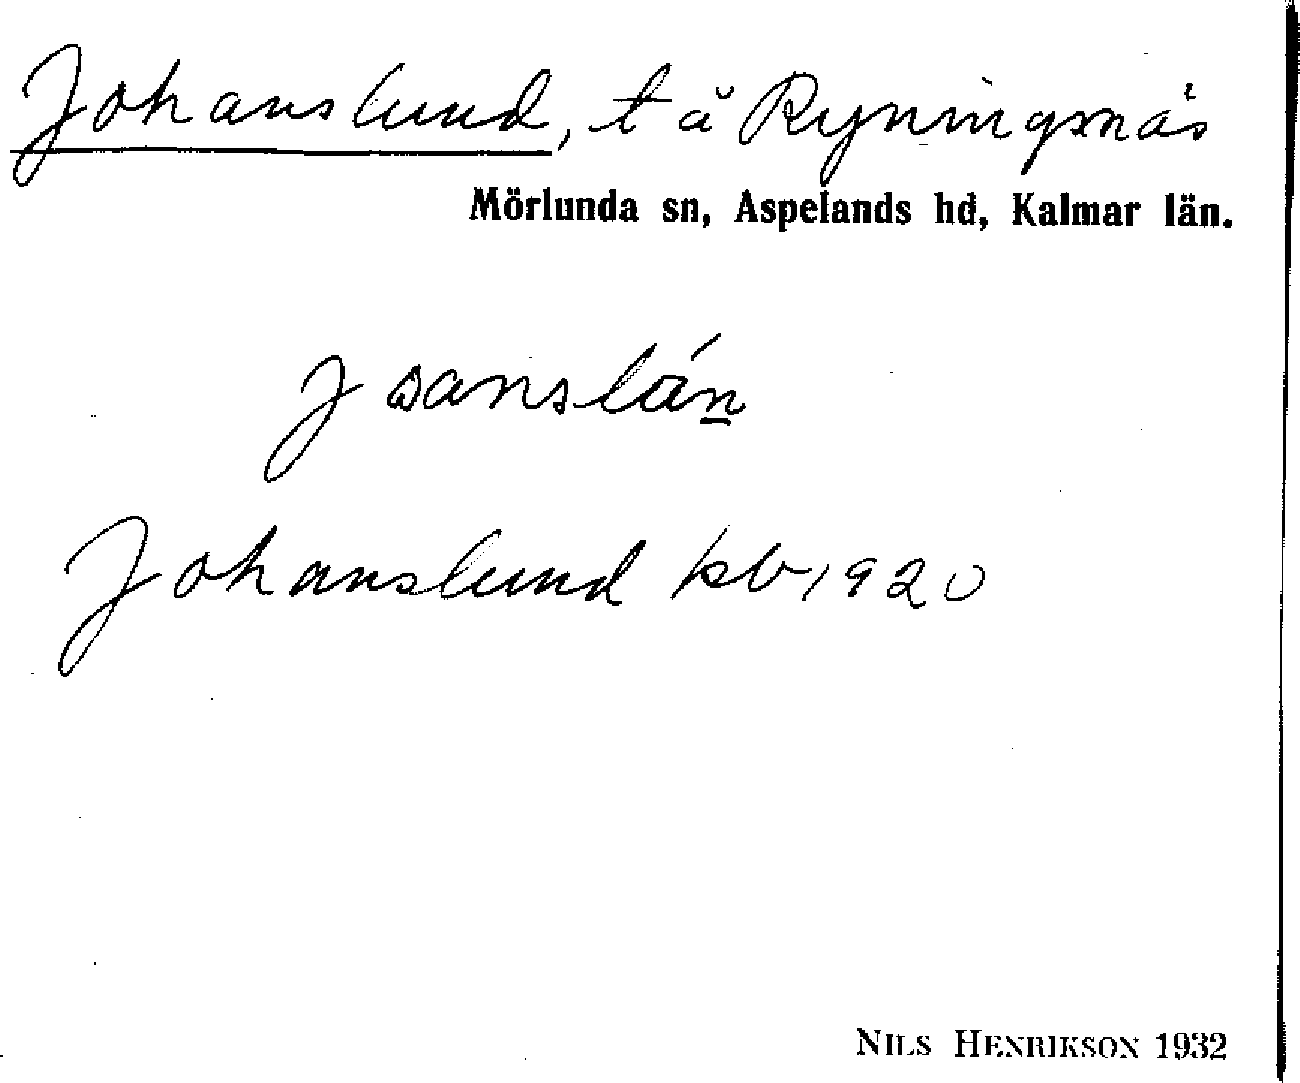 Johanslund, t å Ryningsnäs
Mörlunda sn, Aspelands hd, Kalmar län.
Johanslund kb 1920
NILS HENRIKSON 1932